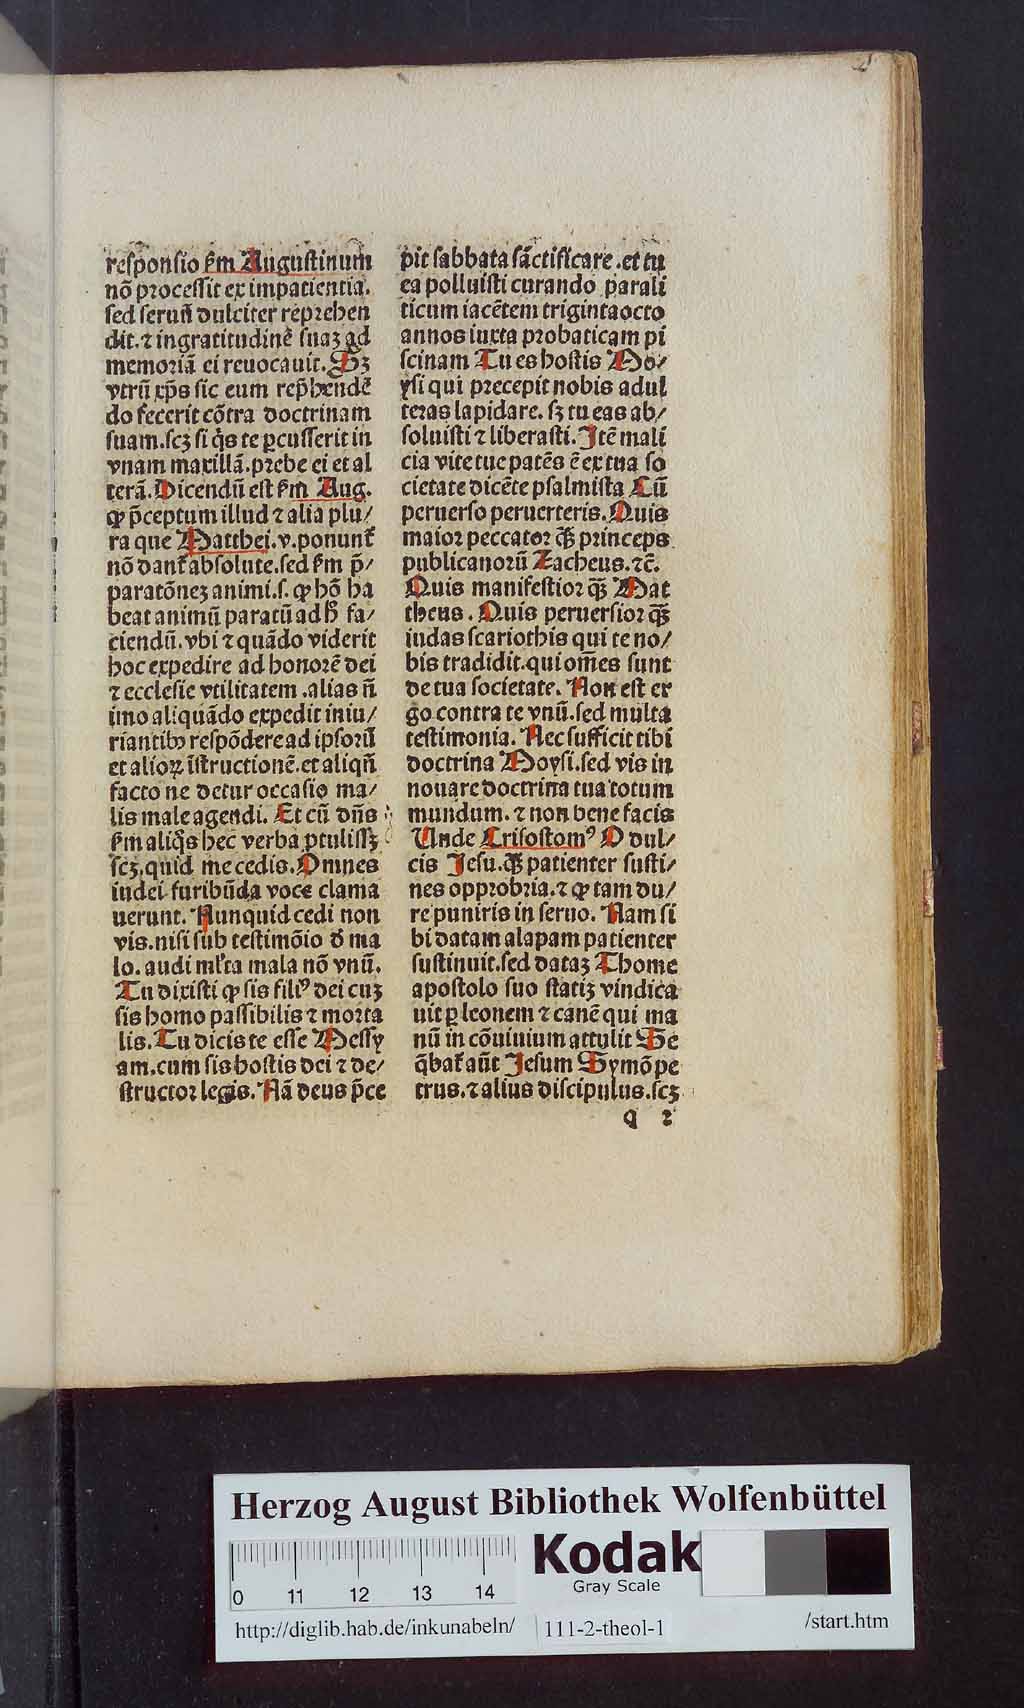 responsio ẜm Augustinum
nō processit ex impatientia.
sed seruū dulciter reprehen
dit. ⁊ ingratitudinē suaꝫ ad
memoriā ei reuocauit. Sꝫ
vtrū xp̄s sic eum rep̄hendē
do fecerit cōtra doctrinam
suam. scꝫ si q̄s te ꝑcusserit in
vnam maxillā. prebe ei et al
terā. Dicendū est ẜm Aug.
ꝙ p̄ceptum illud ⁊ alia plu/
ra que Matthei. v. ponunt̄
nō dant̄ absolute. sed ẜm p̄/
paratōneꝫ animi. s. ꝙ hō ha
beat animū paratū ad h̄ fa/
ciendū. vbi ⁊ quādo viderit
hoc expedire ad honorē dei
⁊ ecclesie vtilitatem. alias n̄
imo aliquādo expedit iniu/
riantibꝰ respōdere ad ipsorū
et alioꝝ īstructionē. et aliqn̄
facto ne detur occasio ma/
lis male agendi. Et cū dn̄s
ẜm aliq̄s hec verba ꝓtulissꝫ
scꝫ. quid me cedis. Omnes
iudei furibūda voce clama
uerunt. Nunquid cedi non
vis. nisi sub testimōio đ ma
lo. audi ml̓ta mala nō vnū.
Tu dixisti ꝙ sis filiꝰ dei cuꝫ
sis homo passibilis ⁊ morta
lis. Tu dicis te esse Messy
am. cum sis hostis dei ⁊ de/
structor legis. Nā deus p̄ce
pit sabbata sāctificare. et tu
ea polluisti curando parali
ticum iacētem trigintaocto
annos iuxta probaticam pi
scinam Tu es hostis Mo/
ysi qui precepit nobis adul
teras lapidare. sꝫ tu eas ab/
soluisti ⁊ liberasti. Itē mali
cia vite tue patēs ē ex tua so
cietate dicēte psalmista Cū
peruerso peruerteris. Quis
maior peccator qͫꝫ princeps
publicanorū Zacheus. ⁊c̄.
Quis manifestior qͫꝫ Mat
theus. Quis peruersior qͫꝫ
iudas scariothis qui te no/
bis tradidit. qui om̄es sunt
de tua societate. Non est er
go contra te vnū. sed multa
testimonia. Nec sufficit tibi
doctrina Moysi. sed vis in
nouare doctrina tua totum
mundum. ⁊ non bene facis
Unde Crisostomꝰ O dul/
cis Jesu. qͫꝫ patienter susti/
nes opprobria. ⁊ ꝙ tam du/
re puniris in seruo. Nam si
bi datam alapam patienter
sustinuit. sed dataꝫ Thome
apostolo suo statiꝫ vindica
uit ꝑ leonem ⁊ canē qui ma
nū in cōuiuium attulit Se
q̄bat̄ aūt Jesum Symō pe
trus. ⁊ alius discipulus. scꝫ
q 2
Herzog August Bibliothek Wolfenbüttel
Kodak
Gray Scale
0 11 12 13 14
http://diglib.hab.de/inkunabeln/ 111-2-theol-1 /start.htm